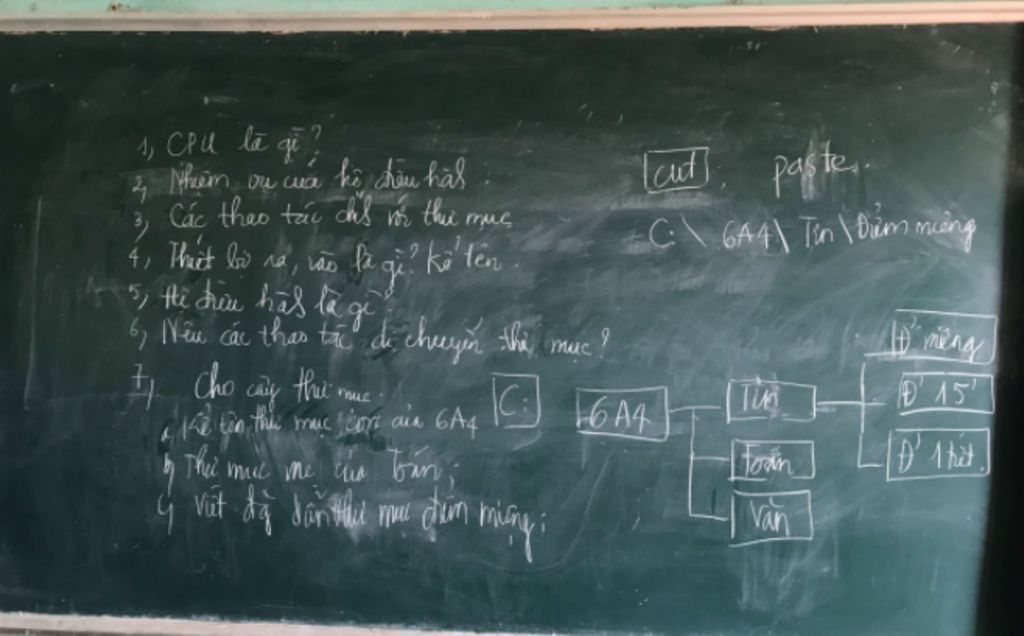 1, CPU là gì?
2, Nhiệm vụ của hệ điều hành.
3, Các thao tác chính với thư mục
4, Thiết bị ra, vào là gì? Kể tên.
5, Hệ điều hành là gì?
6, Nêu các thao tác di chuyển thư mục?
7, Cho cây thư mục.
a, Kể tên thư mục con của 6A4
b, Thư mục mẹ của Toán;
c, Viết đg dẫn thư mục điểm miệng;
cut, paste.
C:\ 6A4\ Tin\Điểm miệng
C:
6A4
Tin
Toán
Văn
Đ' miệng
Đ' 15'
Đ' 1 tiết.